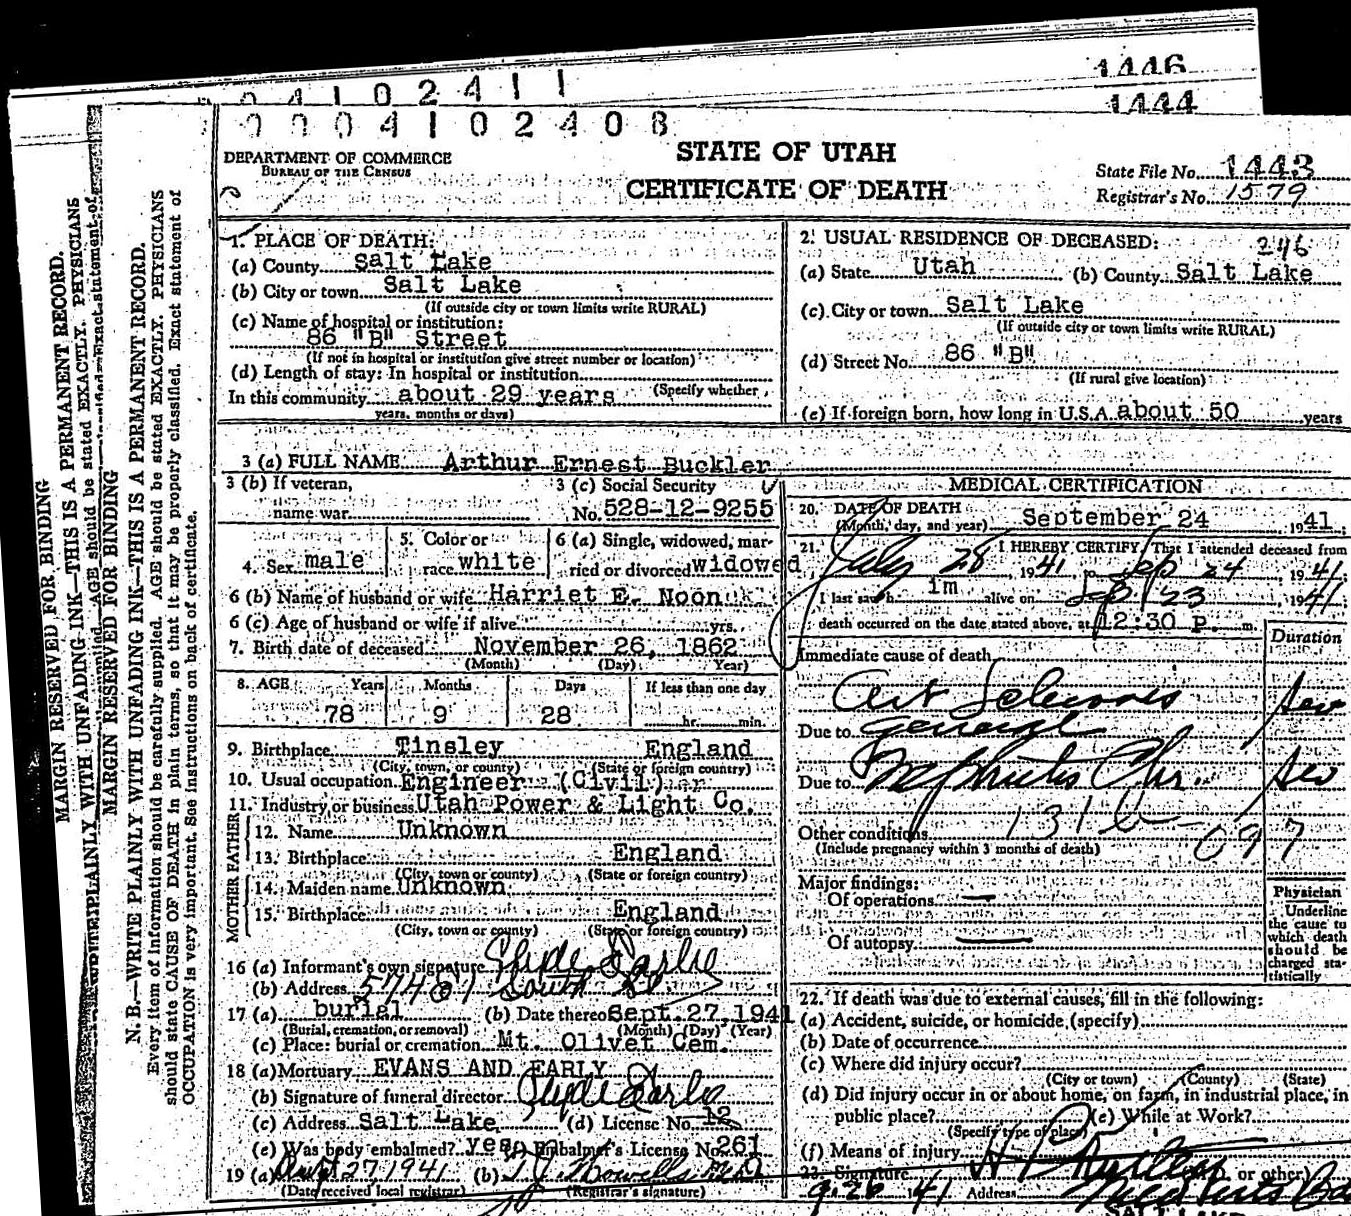 1446
0 4 1 0 2 4 1 1
1444
0 0 0 4 1 0 2 4 0 8
STATE OF UTAH
CERTIFICATE OF DEATH
DEPARTMENT OF COMMERCE
BUREAU OF THE CENSUS
State File No. 1443
Registrar's No. 1579
MARGIN RESERVED FOR BINDING
MARGIN RESERVED FOR BINDING
N. B.—WRITE PLAINLY WITH UNFADING INK—THIS IS A PERMANENT RECORD.
Every item of information should be carefully supplied. AGE should be stated EXACTLY. PHYSICIANS
should state CAUSE OF DEATH in plain terms, so that it may be properly classified. Exact statement of
OCCUPATION is very important. See instructions on back of certificate.
1. PLACE OF DEATH:
(a) County Salt Lake
(b) City or town Salt Lake
(If outside city or town limits write RURAL)
(c) Name of hospital or institution:
86 "B" Street
(If not in hospital or institution give street number or location)
(d) Length of stay: In hospital or institution
In this community about 29 years (Specify whether
years, months or days)
2. USUAL RESIDENCE OF DECEASED: 246
(a) State Utah (b) County Salt Lake
(c) City or town Salt Lake
(If outside city or town limits write RURAL)
(d) Street No. 86 "B"
(If rural give location)
(e) If foreign born, how long in U.S.A. about 50 years
3 (a) FULL NAME Arthur Ernest Buckler
3 (b) If veteran,
name war
3 (c) Social Security
No. 528-12-9255
4. Sex male
5. Color or
race white
6 (a) Single, widowed, mar-
ried or divorced widowed
6 (b) Name of husband or wife Harriet E. Noon
6 (c) Age of husband or wife if alive yrs.
7. Birth date of deceased November 26, 1862
(Month) (Day) Year)
8. AGE Years Months Days If less than one day
78 9 28 hr. min.
9. Birthplace Tinsley England
(City, town, or county) (State or foreign country)
10. Usual occupation Engineer (Civil)
11. Industry or business Utah Power & Light Co.
FATHER
12. Name Unknown
13. Birthplace England
(City, town or county) (State or foreign country)
MOTHER
14. Maiden name Unknown
15. Birthplace England
(City, town or county) (State or foreign country)
16 (a) Informant's own signature Clyde Earlie
(b) Address South
17 (a) burial (b) Date thereof Sept. 27, 1941
(Burial, cremation, or removal) (Month) (Day) (Year)
(c) Place: burial or cremation Mt. Olivet Cem.
18 (a) Mortuary EVANS AND EARLY
(b) Signature of funeral director Clyde Earlie
(c) Address Salt Lake (d) License No. 12
(e) Was body embalmed? yes Embalmer's License No. 261
19 (a) Sept 27, 1941 (b) T. J. Howells M.D.
(Date received local registrar) (Registrar's signature)
MEDICAL CERTIFICATION
20. DATE OF DEATH
(Month, day, and year) September 24, 1941
21. I HEREBY CERTIFY, That I attended deceased from
July 28, 1941 Sep 24, 1941
I last saw h im alive on Sep 23, 1941
death occurred on the date stated above, at 12:30 P. m.
Duration
Immediate cause of death
Art Sclerosis
Due to general
Due to Nephritis Chr.
131 b
Other conditions 097
(Include pregnancy within 3 months of death)
Major findings:
Of operations —
Of autopsy —
Physician
Underline
the cause to
which death
should be
charged sta-
tistically
22. If death was due to external causes, fill in the following:
(a) Accident, suicide, or homicide (specify)
(b) Date of occurrence
(c) Where did injury occur?
(City or town) (County) (State)
(d) Did injury occur in or about home, on farm, in industrial place, in
public place? (e) While at Work?
(Specify type of place)
(f) Means of injury
23. Signature or other)
9-26 41 Address
SALT LAKE